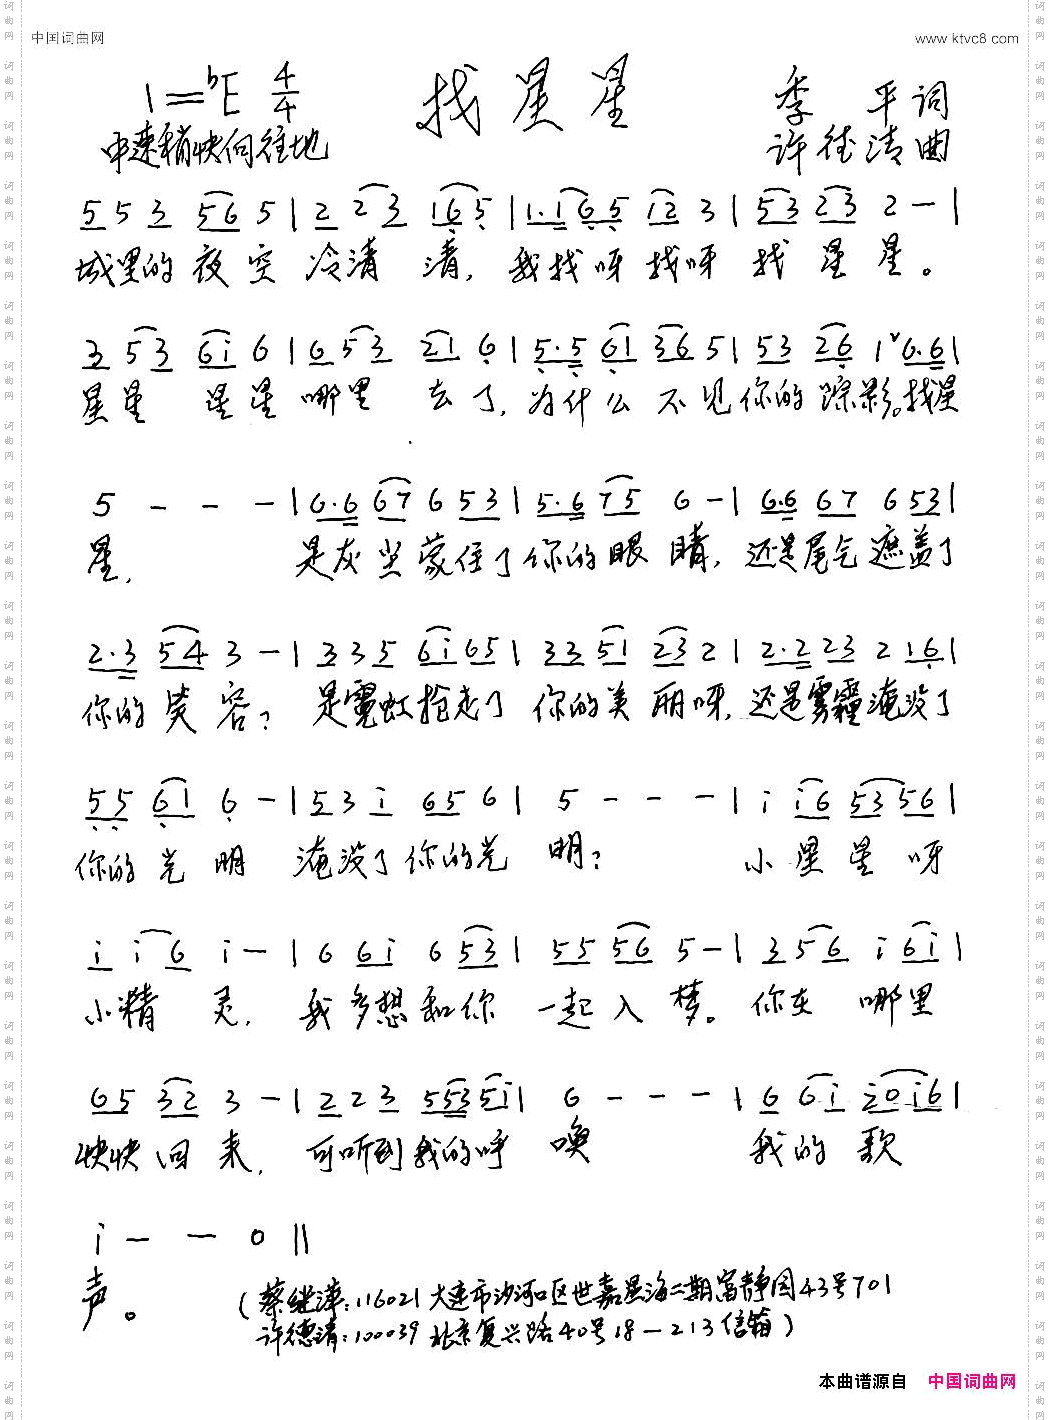 中国词曲网 www.ktvc8.com
1=♭E 4/4 找星星 季平词
中速稍快向往地 许德清曲
5 5 3 5 6 5 | 2 2 3 1 6 5 | 1·1 6 5 1 2 3 | 5 3 2 3 2 - |
城里的夜空冷清清，我找呀找呀找星星。
3 5 3 6 i 6 | 6 5 3 2 1 6 | 5·5 6 1 3 6 5 | 5 3 2 6 1 ˅ 6·6 |
星星 星星哪里去了，为什么不见你的踪影。找星
5 - - - | 6·6 6 7 6 5 3 | 5·6 7 5 6 - | 6·6 6 7 6 5 3 |
星， 是灰尘蒙住了你的眼睛，还是尾气遮盖了
2·3 5 4 3 - | 3 3 5 6 i 6 5 | 3 3 5 1 2 3 2 | 2·2 2 3 2 1 6 |
你的笑容？是霓虹抢走了你的美丽呀，还是雾霾淹没了
5 5 6 1 6 - | 5 3 i 6 5 6 | 5 - - - | i i 6 5 3 5 6 |
你的光明 淹没了你的光明？ 小星星呀
i i 6 i - | 6 6 i 6 5 3 | 5 5 5 6 5 - | 3 5 6 i 6 i |
小精灵，我多想和你一起入梦。你在哪里
6 5 3 2 3 - | 2 2 3 5 5 3 5 i | 6 - - - | 6 6 i 2 0 i 6 |
快快回来，可听到我的呼唤 我的歌
i - - 0 ‖
声。 (蔡继萍：116021大连市沙河口区世嘉星海二期富静园43号701
许德清：100039北京复兴路40号18-213信箱)
本曲谱源自 中国词曲网